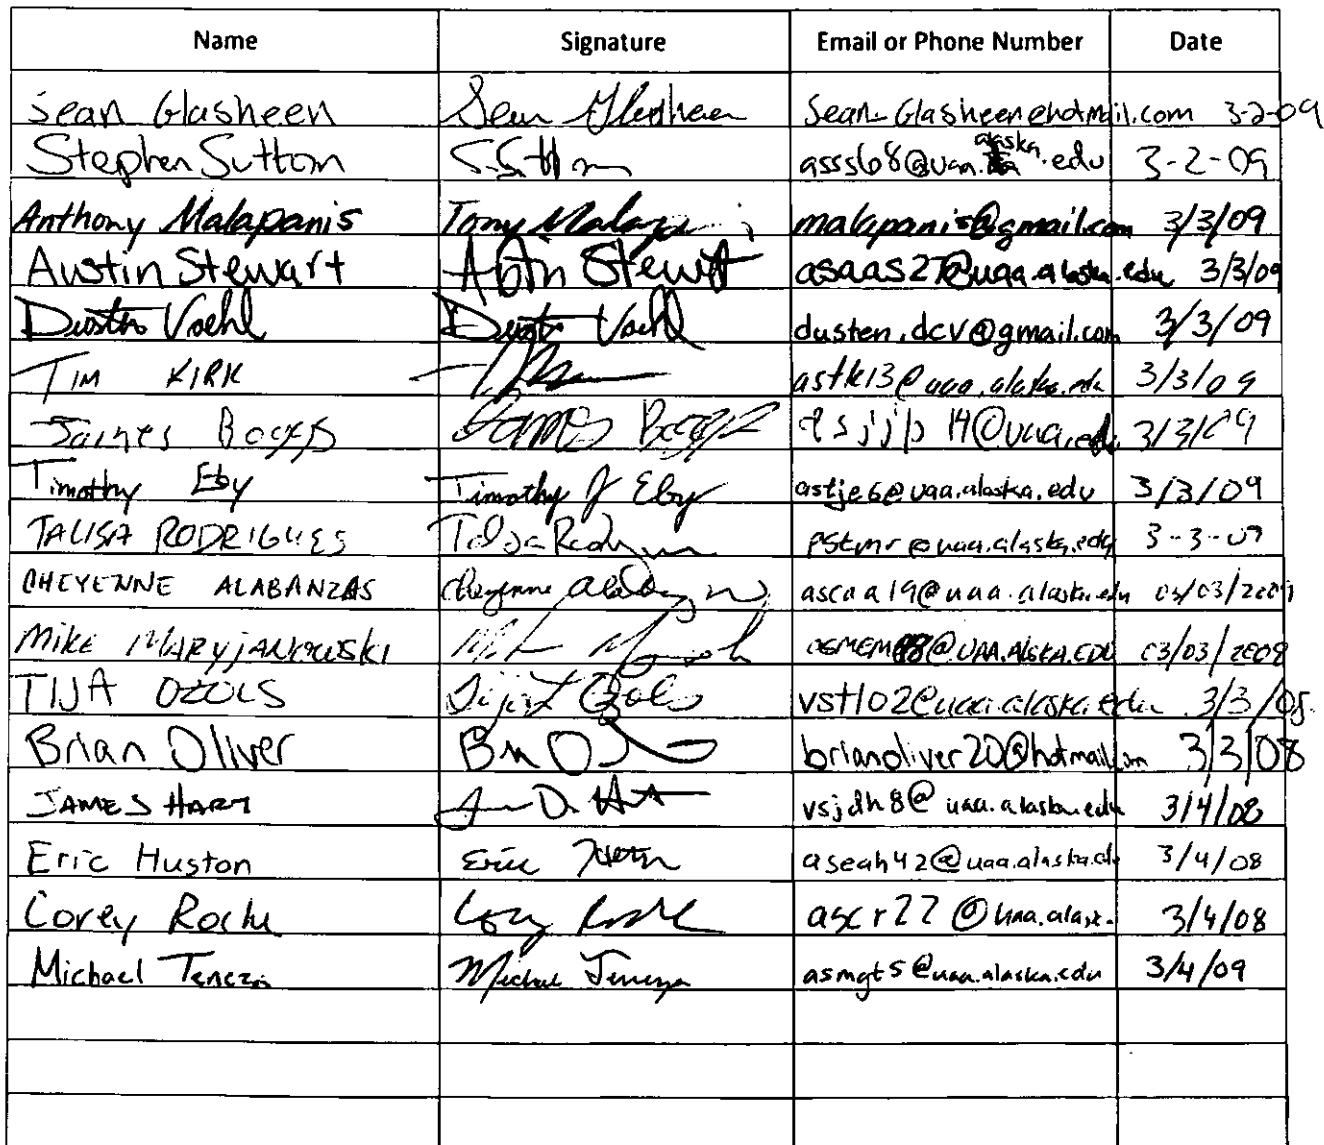 Name Signature Email or Phone Number Date
Sean Glasheen Sean Glasheen Sean_Glasheen@hotmail.com 3-2-09
Stephen Sutton S. Sutton asss68@uaa.alaska.edu 3-2-09
Anthony Malapanis Tony Malapanis malapanis@gmail.com 3/3/09
Austin Stewart Austin Stewart asaas27@uaa.alaska.edu 3/3/09
Dusten Voehl Dusten Voehl dusten.dcv@gmail.com 3/3/09
TIM KIRK astk13@uaa.alaska.edu 3/3/09
James Boggs James Boggs @uaa.edu 3/3/09
Timothy Eby Timothy J Eby astje6@uaa.alaska.edu 3/3/09
TALISA RODRIGUES Talisa Rodrigues pstmr@uaa.alaska.edu 3-3-09
CHEYENNE ALABANZAS Cheyenne ascaa19@uaa.alaska.edu 03/03/2009
MIKE MARYJANOWSKI @UAA.ALSKA.EDU 03/03/2009
TIJA OZOLS Tija Ozols vstl02@uaa.alaska.edu 3/3/08.
Brian Oliver brianoliver20@hotmail.com 3/3/08
JAMES HART vsjdh8@uaa.alaska.edu 3/4/08
Eric Huston Eric Huston aseah42@uaa.alaska.edu 3/4/08
Corey Corey ascr22@uaa.alask. 3/4/08
Michael Teneza Michael Teneza asmgt5@uaa.alaska.edu 3/4/09